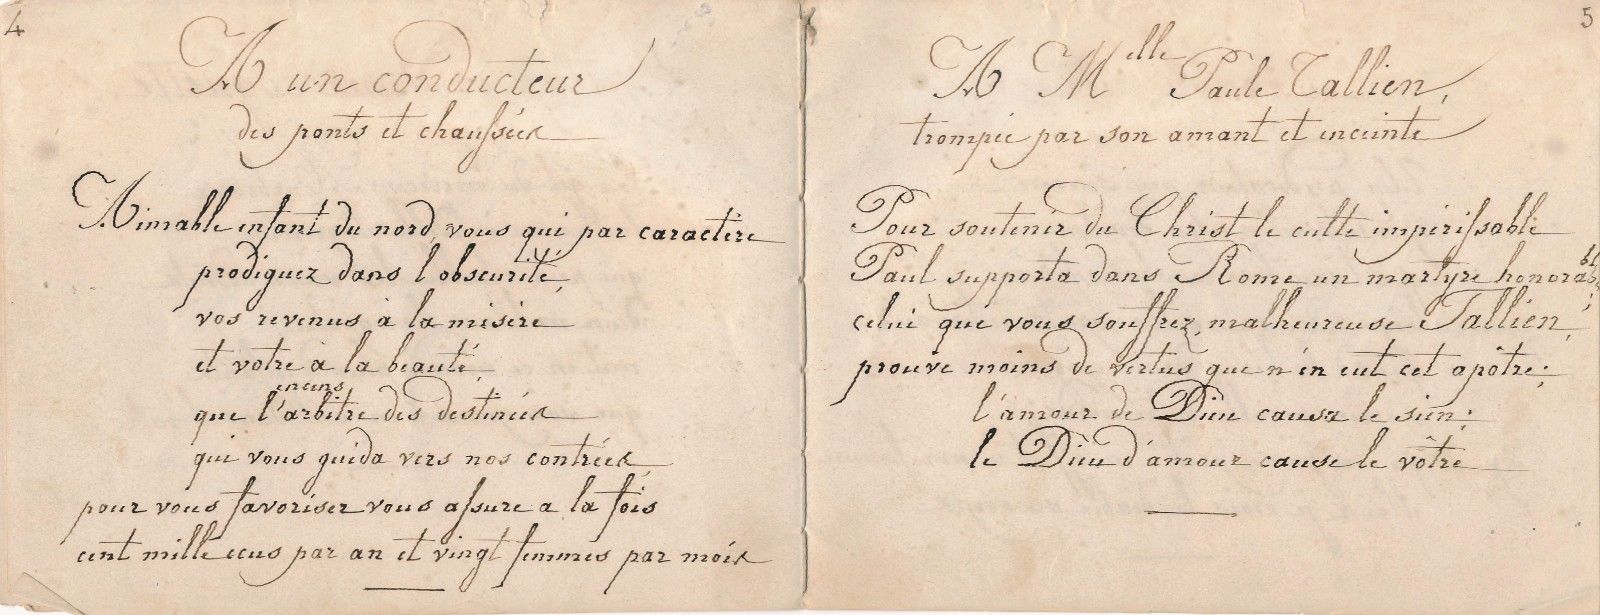 4
A un conducteur
des ponts et chaussées
Aimable enfant du nord, vous qui par caractère
prodiguez dans l'obscurité,
vos revenus à la misère
et votre encens à la beauté,
que l'arbitre des destinées
qui vous guida vers nos contrées,
pour vous favoriser vous assure a la fois
cent mille ecus par an et vingt femmes par mois
5
A Melle Paule Tallien,
trompée par son amant et enceinte
Pour soutenir du Christ le culte impérissable
Paul supporta dans Rome un martyre honorable;
celui que vous souffrez, malheureuse Tallien,
prouve moins de vertus que n'en eut cet apôtre;
l'amour de Dieu causa le sien;
le Dieu d'amour cause le vôtre